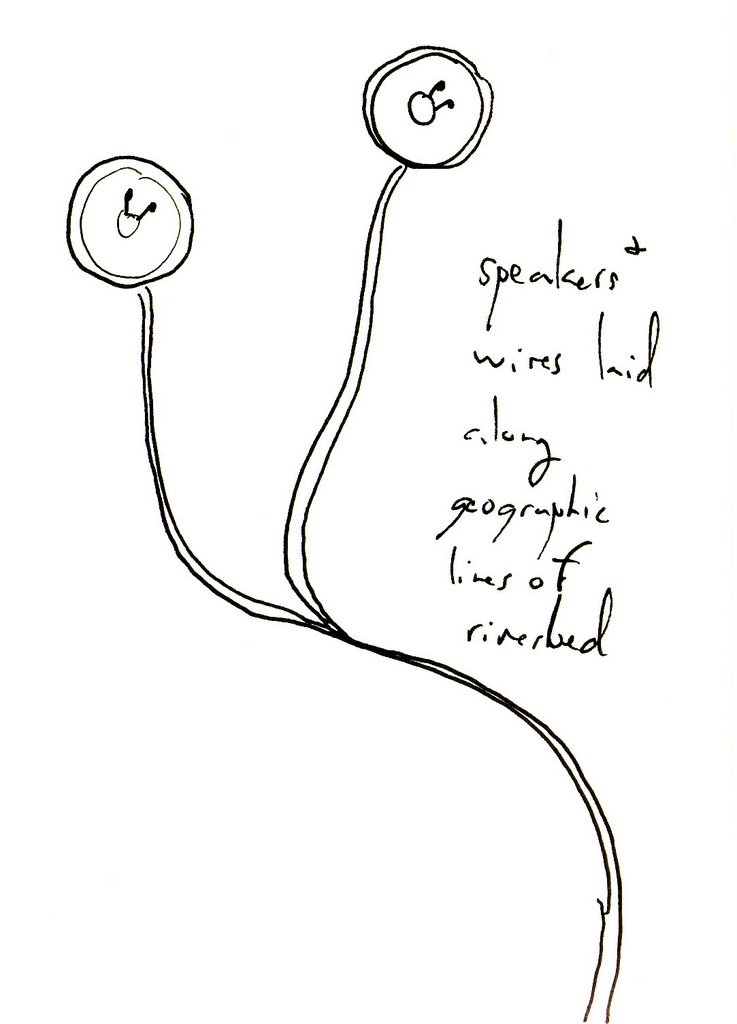 speakers +
wires laid
along
geographic
lines of
riverbed